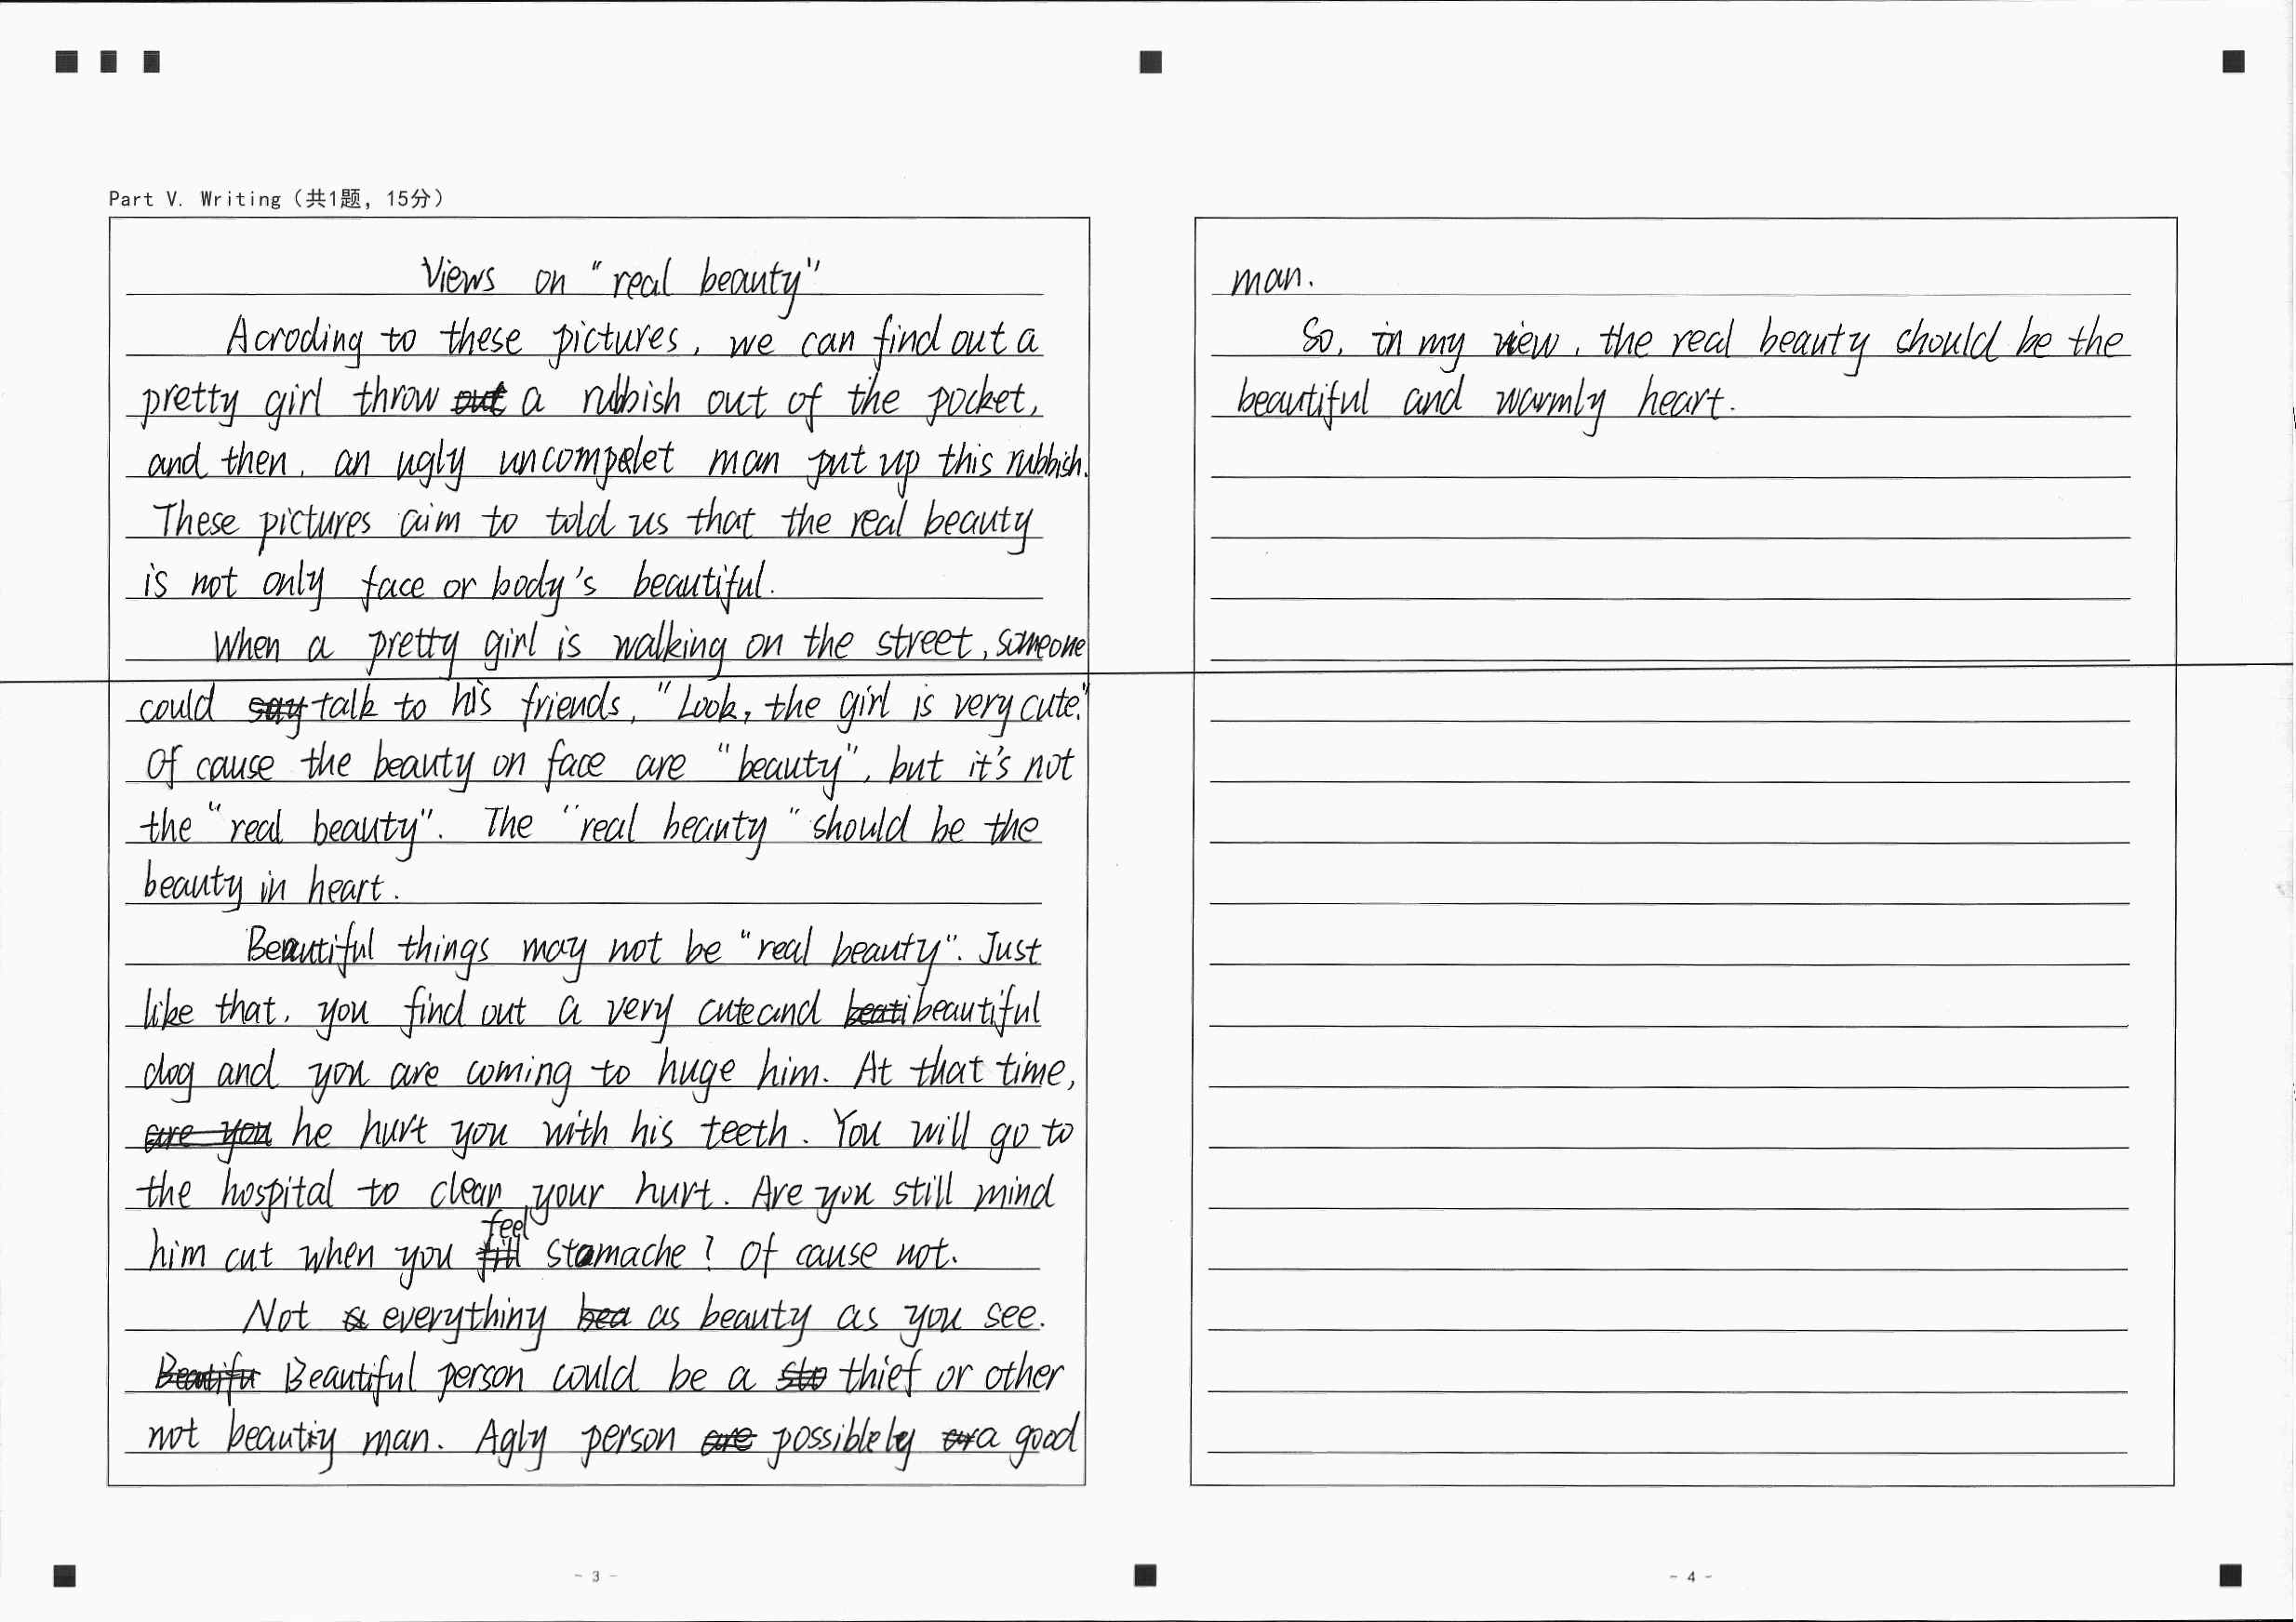 Part V. Writing（共1题，15分）
Views on "real beauty"
Acroding to these pictures, we can find out a
pretty girl throw out a rubbish out of the pocket,
and then, an ugly uncompelet man put up this rubbish.
These pictures aim to told us that the real beauty
is not only face or body's beautiful.
When a pretty girl is walking on the street, someone
could say talk to his friends, "Look, the girl is very cute."
Of cause the beauty on face are "beauty", but it's not
the "real beauty". The "real beauty" should be the
beauty in heart.
Beautiful things may not be "real beauty". Just
like that, you find out a very cute and beati beautiful
dog and you are coming to huge him. At that time,
are you he hurt you with his teeth. You will go to
the hospital to clean your hurt. Are you still mind
feel
him cut when you fill stomache? Of cause not.
Not a everything bea as beauty as you see.
Beautifu Beautiful person could be a sto thief or other
not beautiy man. Agly person are possiblely a good
- 3 -
man.
So, in my view, the real beauty should be the
beautiful and warmly heart.
- 4 -